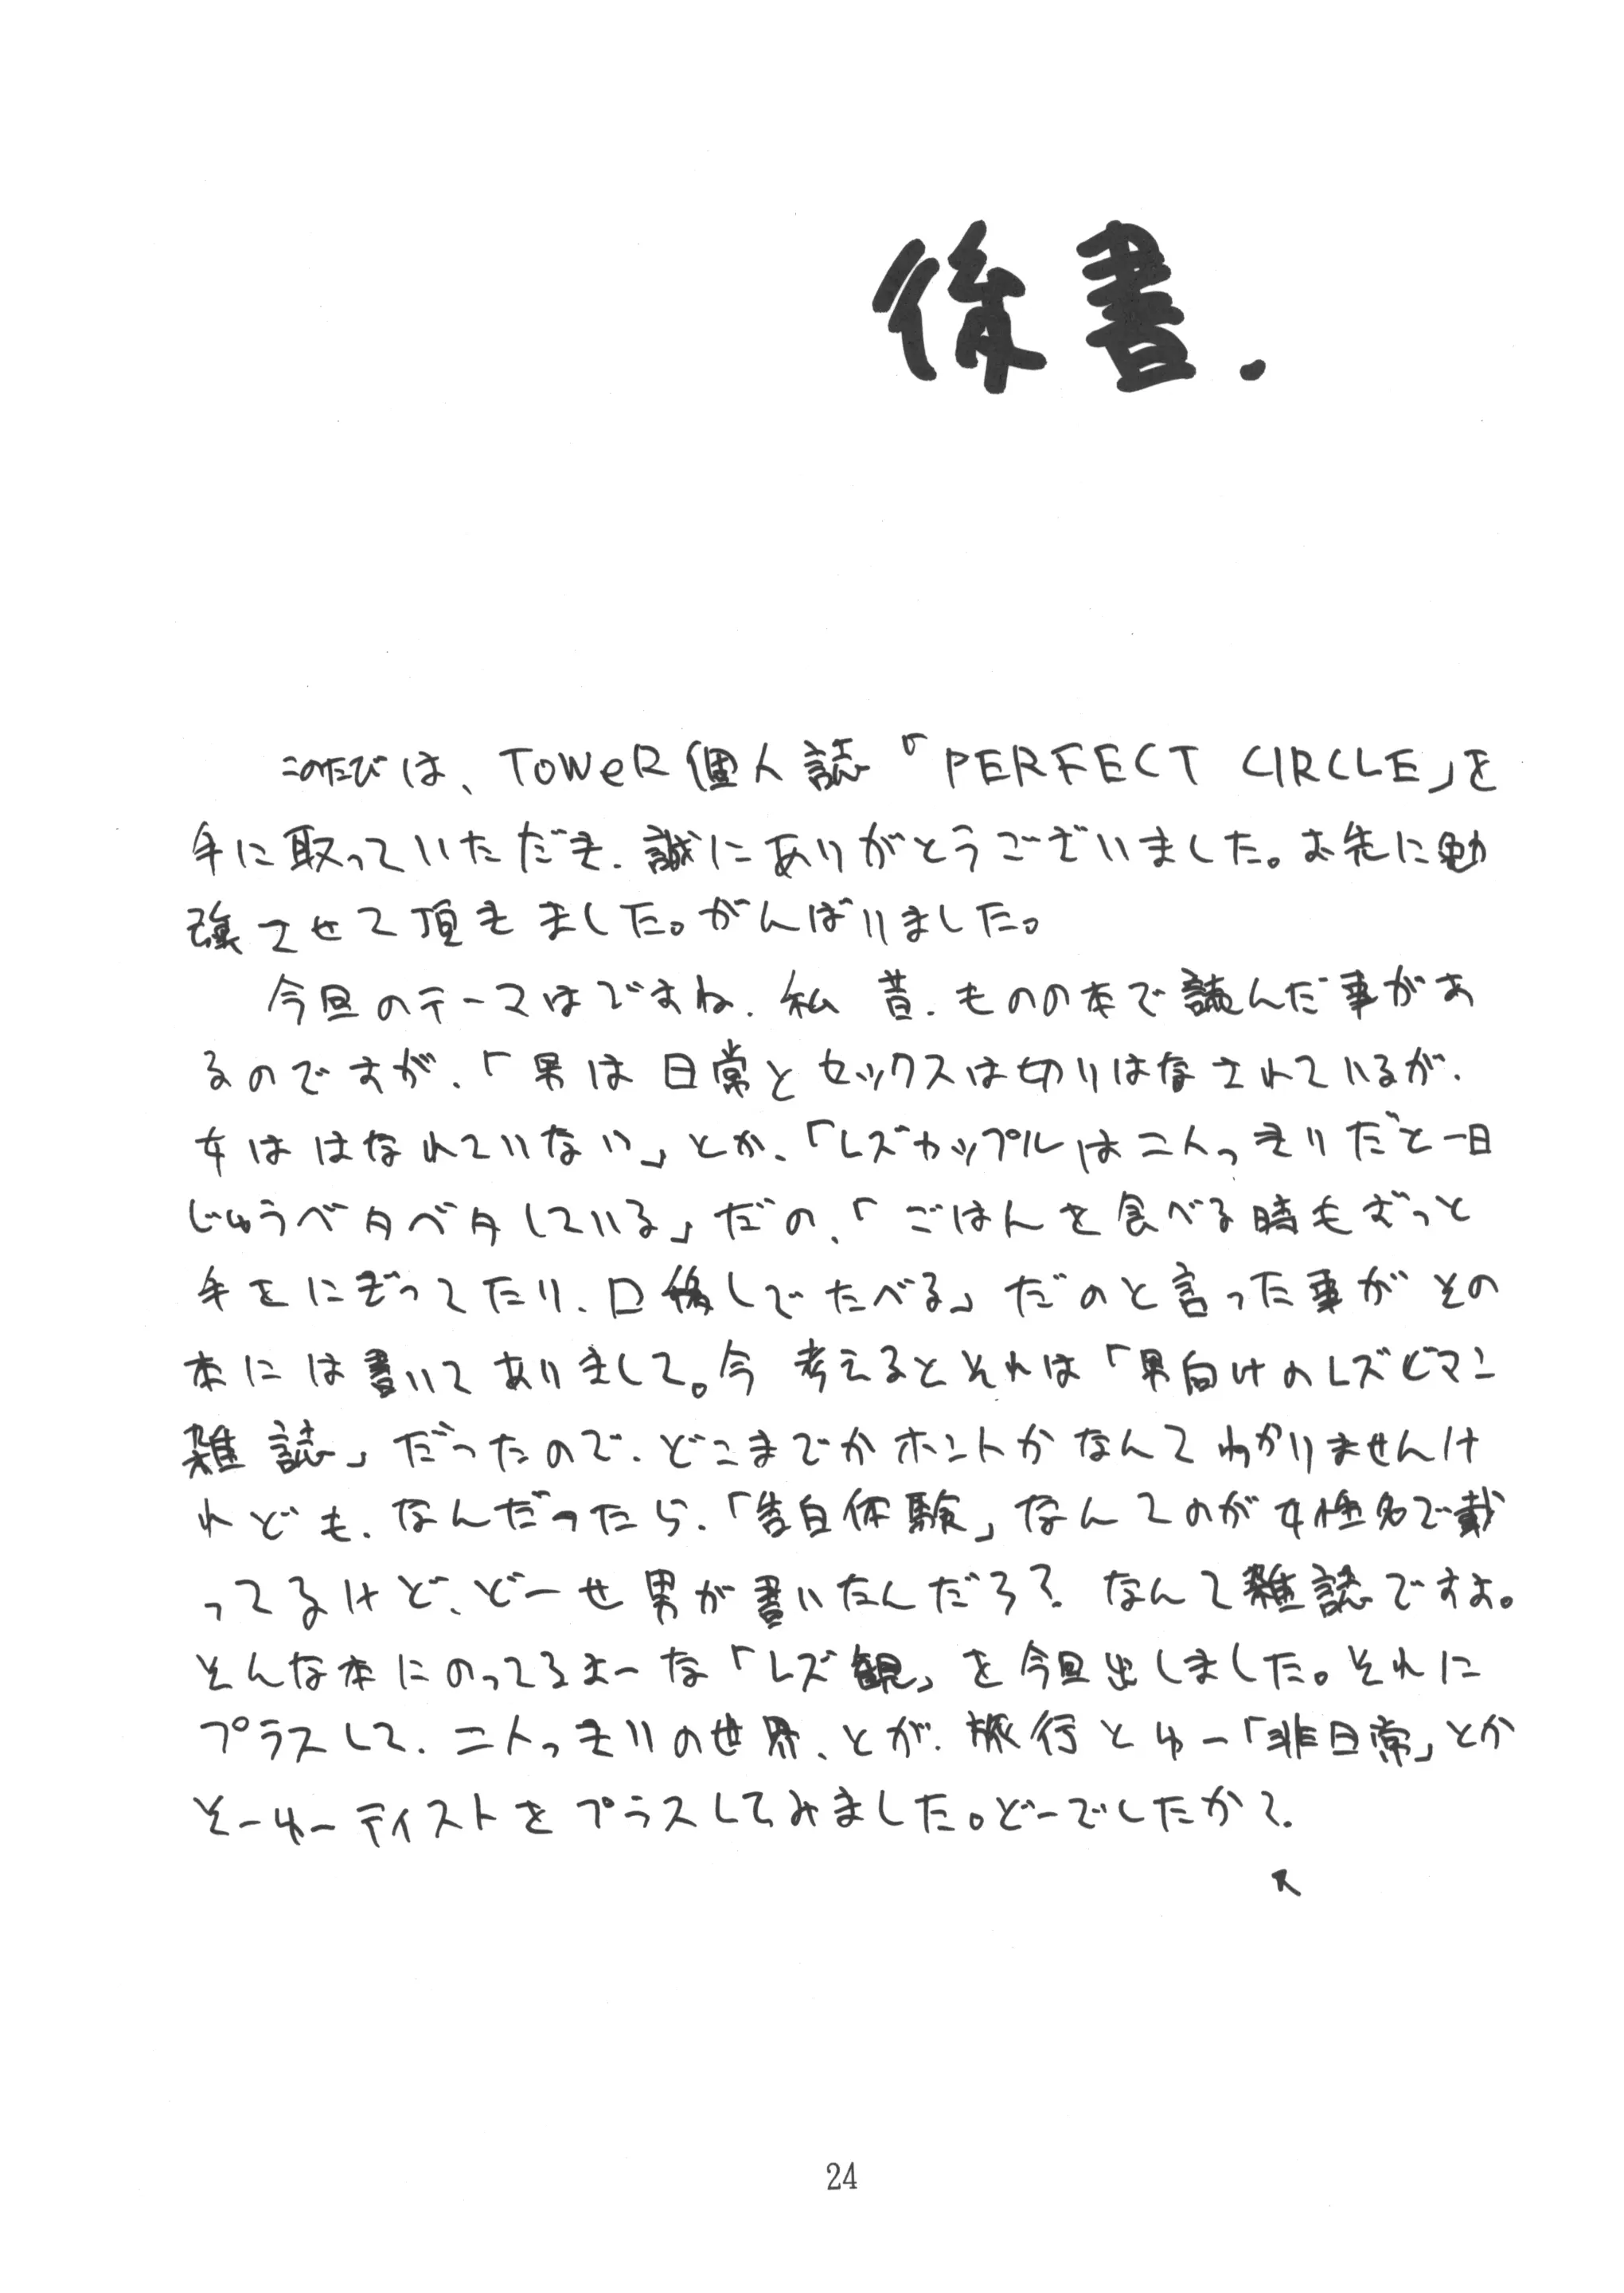 後書.
このたびは、ToWeR個人誌「PERFECT CIRCLE」を
手に取っていただき、誠にありがとうございました。お先に勉
強させて頂きました。がんばりました。
今回のテーマはですね、私 昔、ものの本で読んだ事があ
るのですが、「男は日常とセックスは切りはなされているが、
女ははなれていない」とか、「レズカップルは二人っきりだと一日
じゅうベタベタしている」だの、「ごはんを食べる時もずっと
手をにぎってたり、口移しでたべる」だのと言った事がその
本には書いてありまして。今考えるとそれは「男向けのレズビマン
雑誌」だったので、どこまでがホントかなんてわかりませんけ
れども、なんだったら、「告白体験」なんてのが女性名で載
ってるけど、どーせ男が書いたんだろ？なんて雑誌ですよ。
そんな本にのってるよーな「レズ観」を今回出しました。それに
プラスして、二人っきりの世界、とか、旅行とゆー「非日常」とか
そーゆーテイストをプラスしてみました。どーでしたか？
24